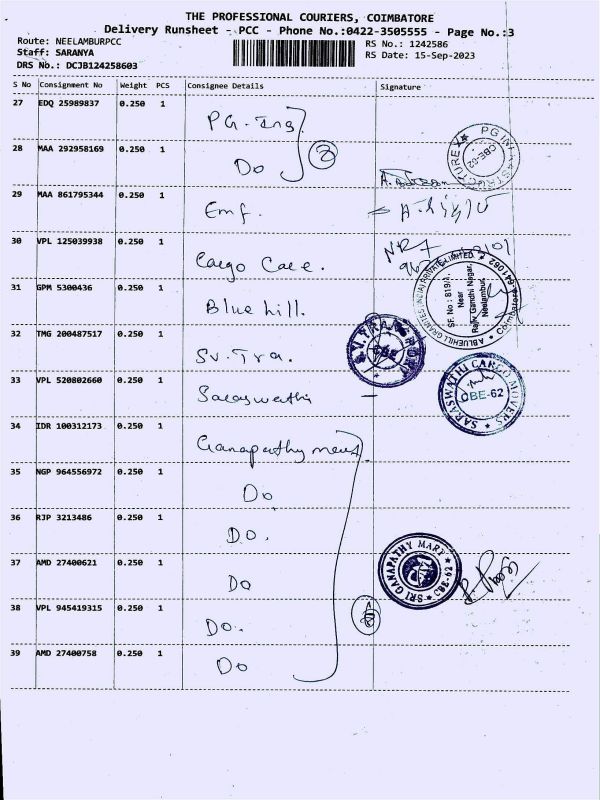 THE PROFESSIONAL COURIERS, COIMBATORE
Delivery Runsheet - PCC - Phone No.:0422-3505555 - Page No.:3
Route: NEELAMBURPCC
RS No.: 1242586
Staff: SARANYA
RS Date: 15-Sep-2023
DRS No.: DCJB124258603
S No Consignment No Weight PCS Consignee Details Signature
27 EDQ 25989837 0.250 1 PG-Ing
28 MAA 292958169 0.250 1 Do 2
PG INFRASTRUCTURE CBE-62
29 MAA 861795344 0.250 1 Emf.
30 VPL 125039938 0.250 1 Cargo Care.
31 GPM 5300436 0.250 1 Blue hill.
ABLUEHILL GRANITES (INDIA) PRIVATE LIMITED
SF. No : 819/
Near
Rajiv Gandhi Nagar,
Neelambur,
Coimbatore-641062
32 TMG 200487517 0.250 1 Sv. Tra.
S.V. TRANSPORT CBE
33 VPL 520802660 0.250 1 Saraswathi
SARASWATHI CARGO MOVERS CBE-62
34 IDR 100312173 0.250 1 Ganapathy
35 NGP 964556972 0.250 1 Do
36 RJP 3213486 0.250 1 Do.
37 AMD 27400621 0.250 1 Do
SRI GANAPATHY MART CBE-62
38 VPL 945419315 0.250 1 Do.
39 AMD 27400758 0.250 1 Do